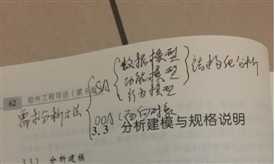 数据模型
SA 功能模型 结构化分析
行为模型
62 软件工程导论(第
需求分析方法
OOA 面向对象
3.3 分析建模与规格说明
3.3.1 分析建模